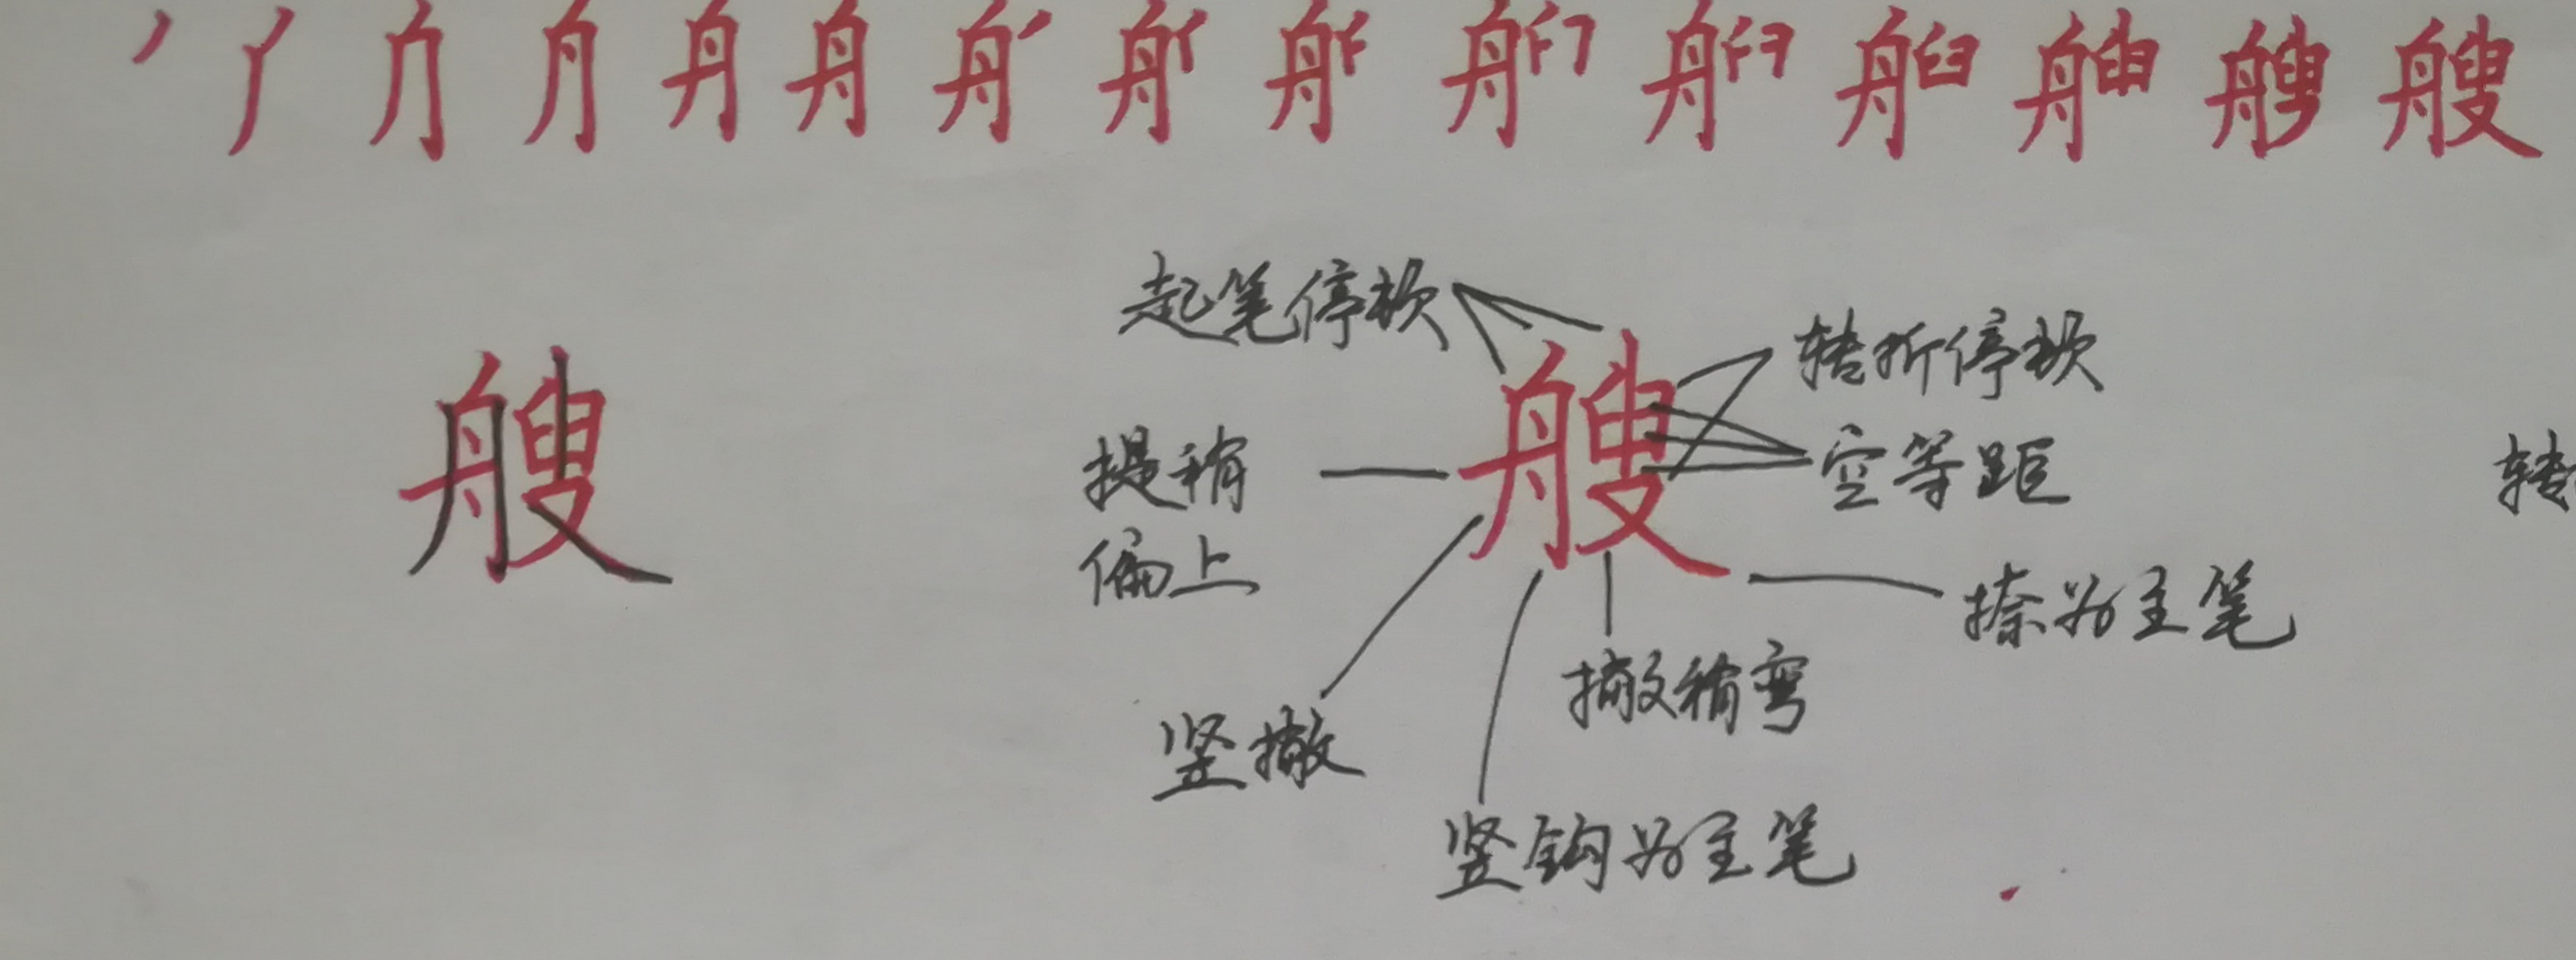 艘
艘
艘
起笔停顿
转折停顿
提稍
偏上
空等距
捺为主笔
撇稍弯
竖撇
竖钩为主笔
转